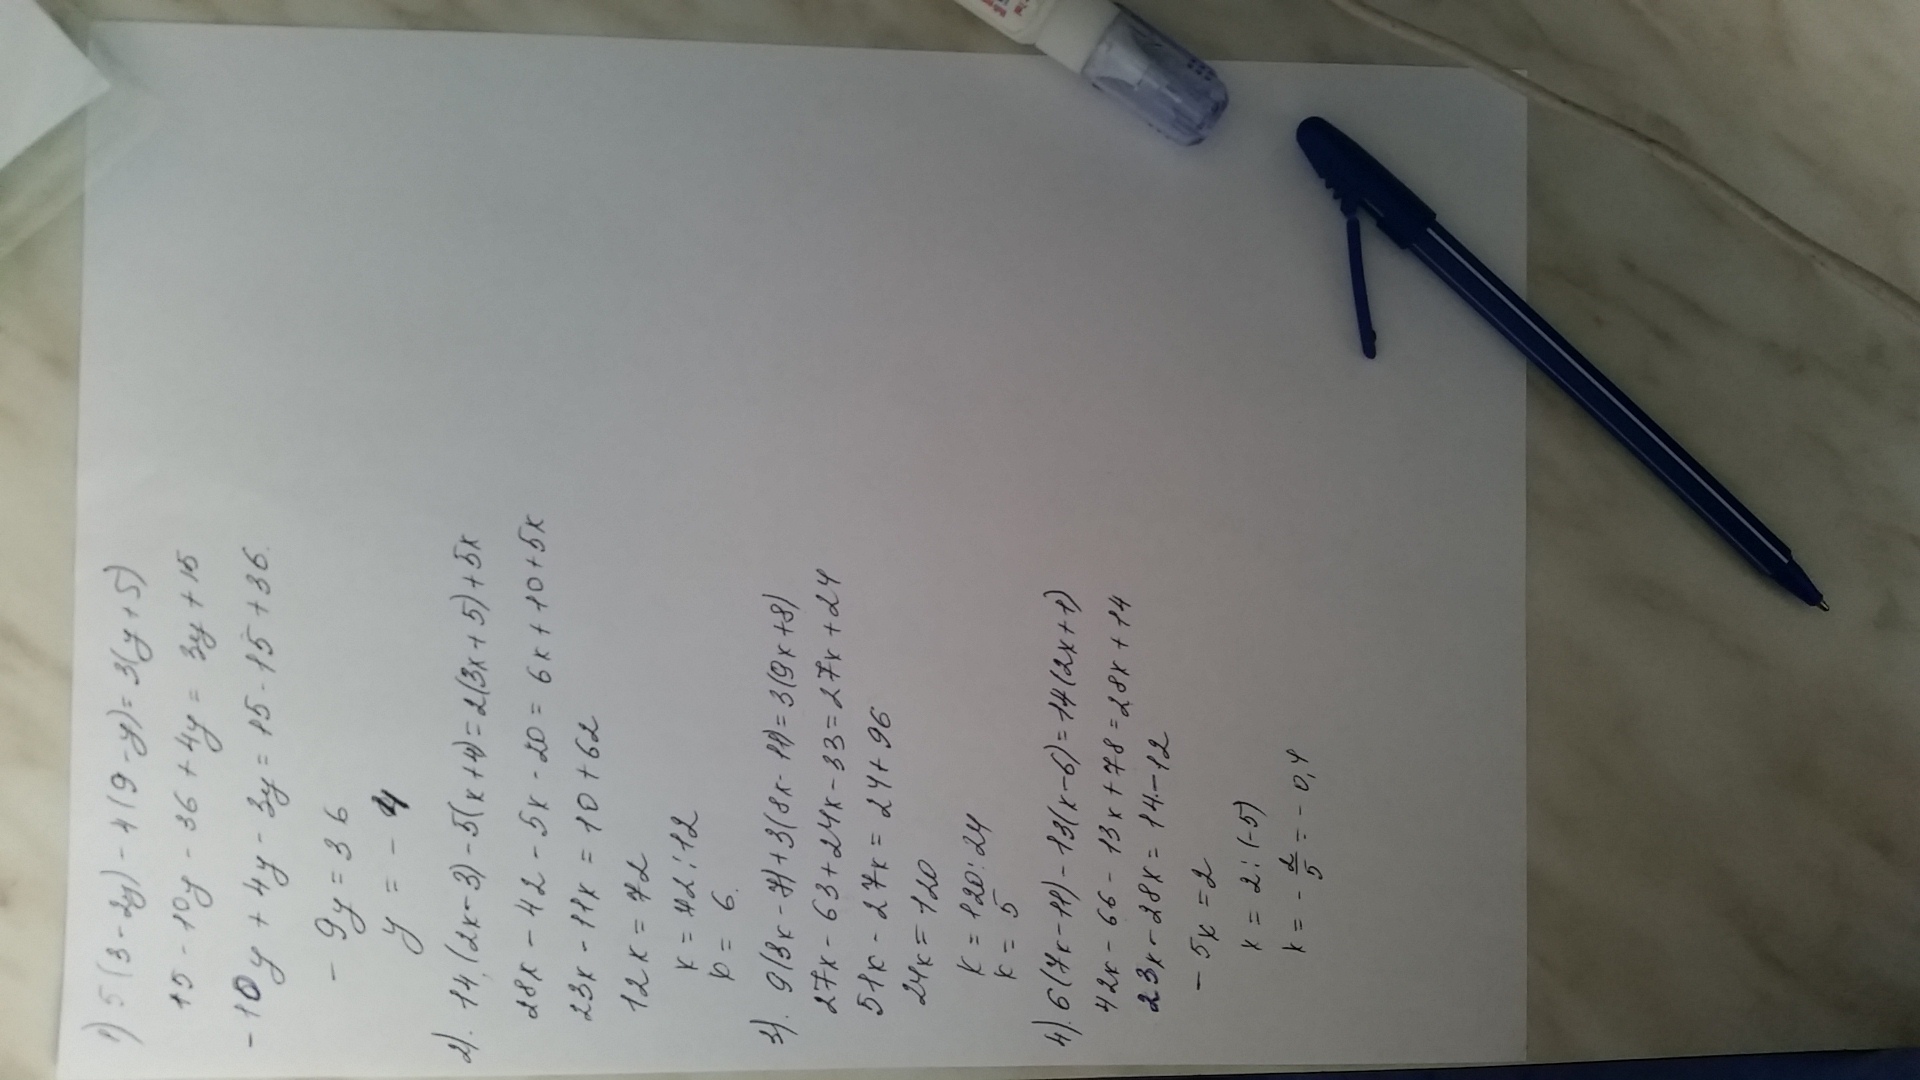 1) 5(3-2y)-4(9-y)=3(y+5)
15-10y-36+4y=3y+15
-10y+4y-3y=15-15+36.
-9y=36
y=-4
2). 14(2x-3)-5(x+4)=2(3x+5)+5x
28x-42-5x-20=6x+10+5x
23x-11x=10+62
12x=72
x=72:12
x=6.
3). 9(3x-7)+3(8x-11)=3(9x+8)
27x-63+24x-33=27x+24
51x-27x=24+96
24x=120
x=120:24
x=5
4). 6(7x-11)-13(x-6)=14(2x+1)
42x-66-13x+78=28x+14
23x-28x=14-12
-5x=2
x=2:(-5)
x=-2/5=-0,4